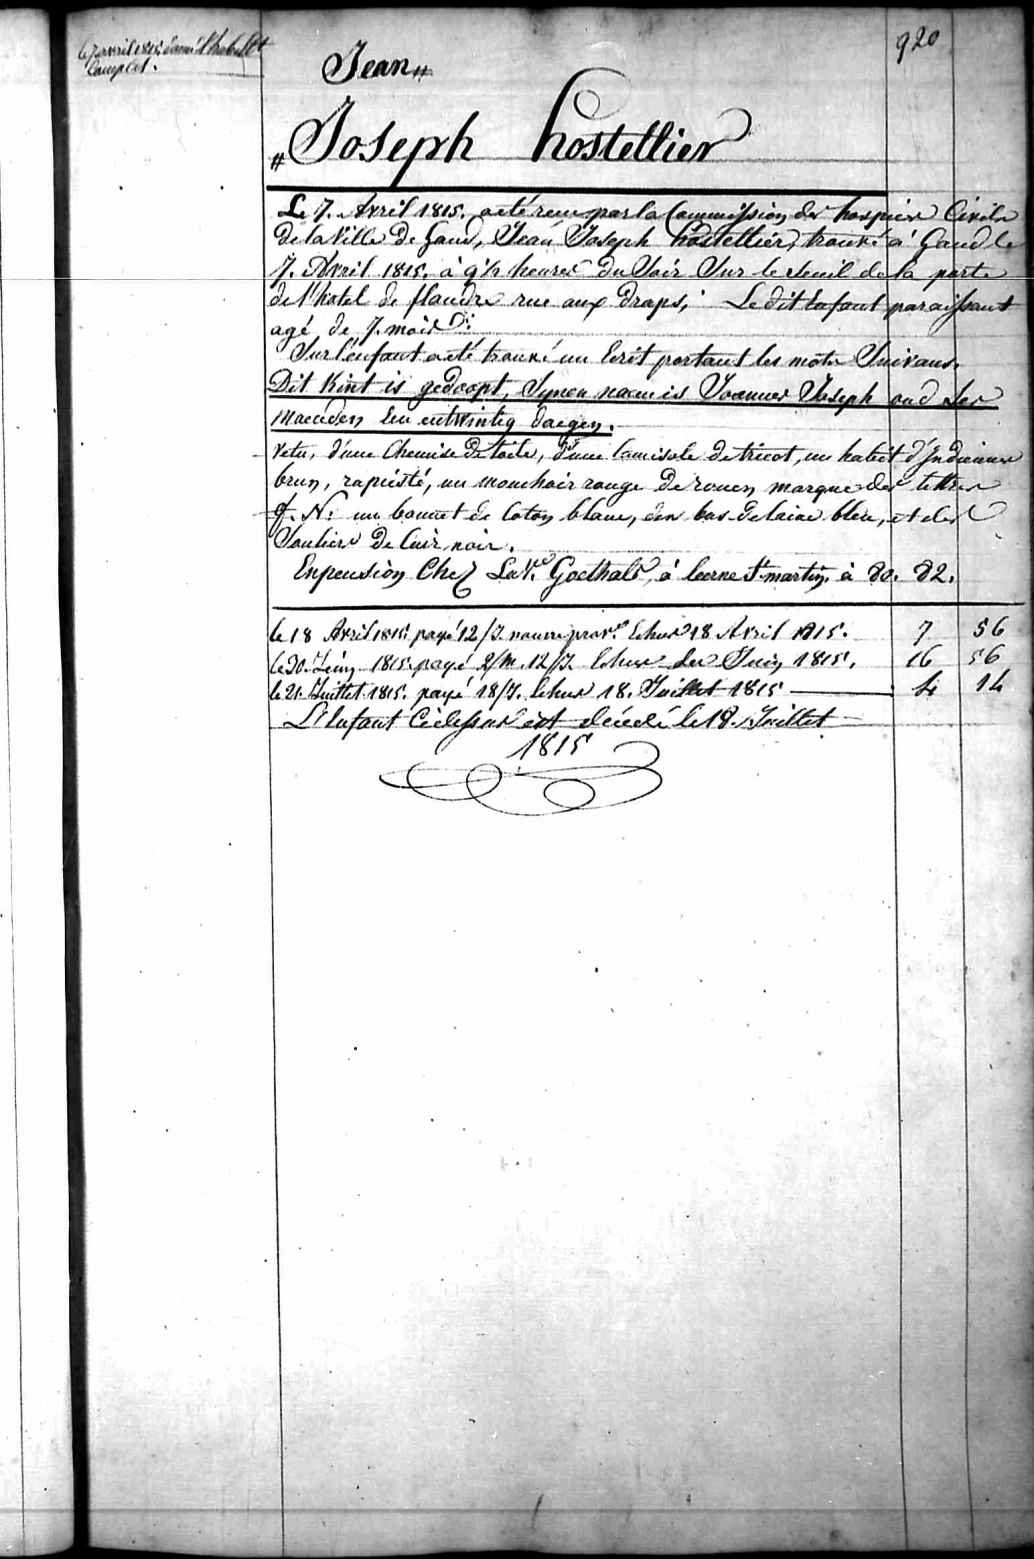 920
le 7 avril 1815 donné l'habillt
Complet.
Jean〃
〃Joseph hostellier
Le 7. Avril 1815. a été reçu par la Commission des hospices Civils
de la Ville de Gand, Jean Joseph hostellier, trouvé à Gand le
7. Avril 1815. à 9½ heures du Soir Sur le Seuil de la porte
de l'hotel de flandre rue aux draps; Le dit Enfant paraissant
agé de 7. mois
Sur l'enfant a été trouvé un Ecrit portant les mots Suivans.
Dit Kint is gedoopt, Synen naem is Joannes Joseph oud Ses
Maenden En entwintig daegen.
vetu, d'une Chemise de toile, d'une Camisole de tricot, un habit d'Indienne
brun, rapiesté, un mouchoir rouge de rouen marque des lettres
f. N: un bonnet de Coton blanc, des bas de laine bleu, et des
Souliers de Cuir noir.
En pension Chez La Ve. Goethals, à leerne St. martin à 80. 82.
le 18 Avril 1815. payé 12/J. nourre prov.re Echus 18 Avril 1815. 7 56
le 30. Juin 1815. payé 2/M. 12/J. Echus Juin 1815. 16 56
le 21. Juillet 1815. payé 18/J. Echus 18. Juillet 1815 4 14
L'Enfant Cidessus est décédé le 18. Juillet
1815